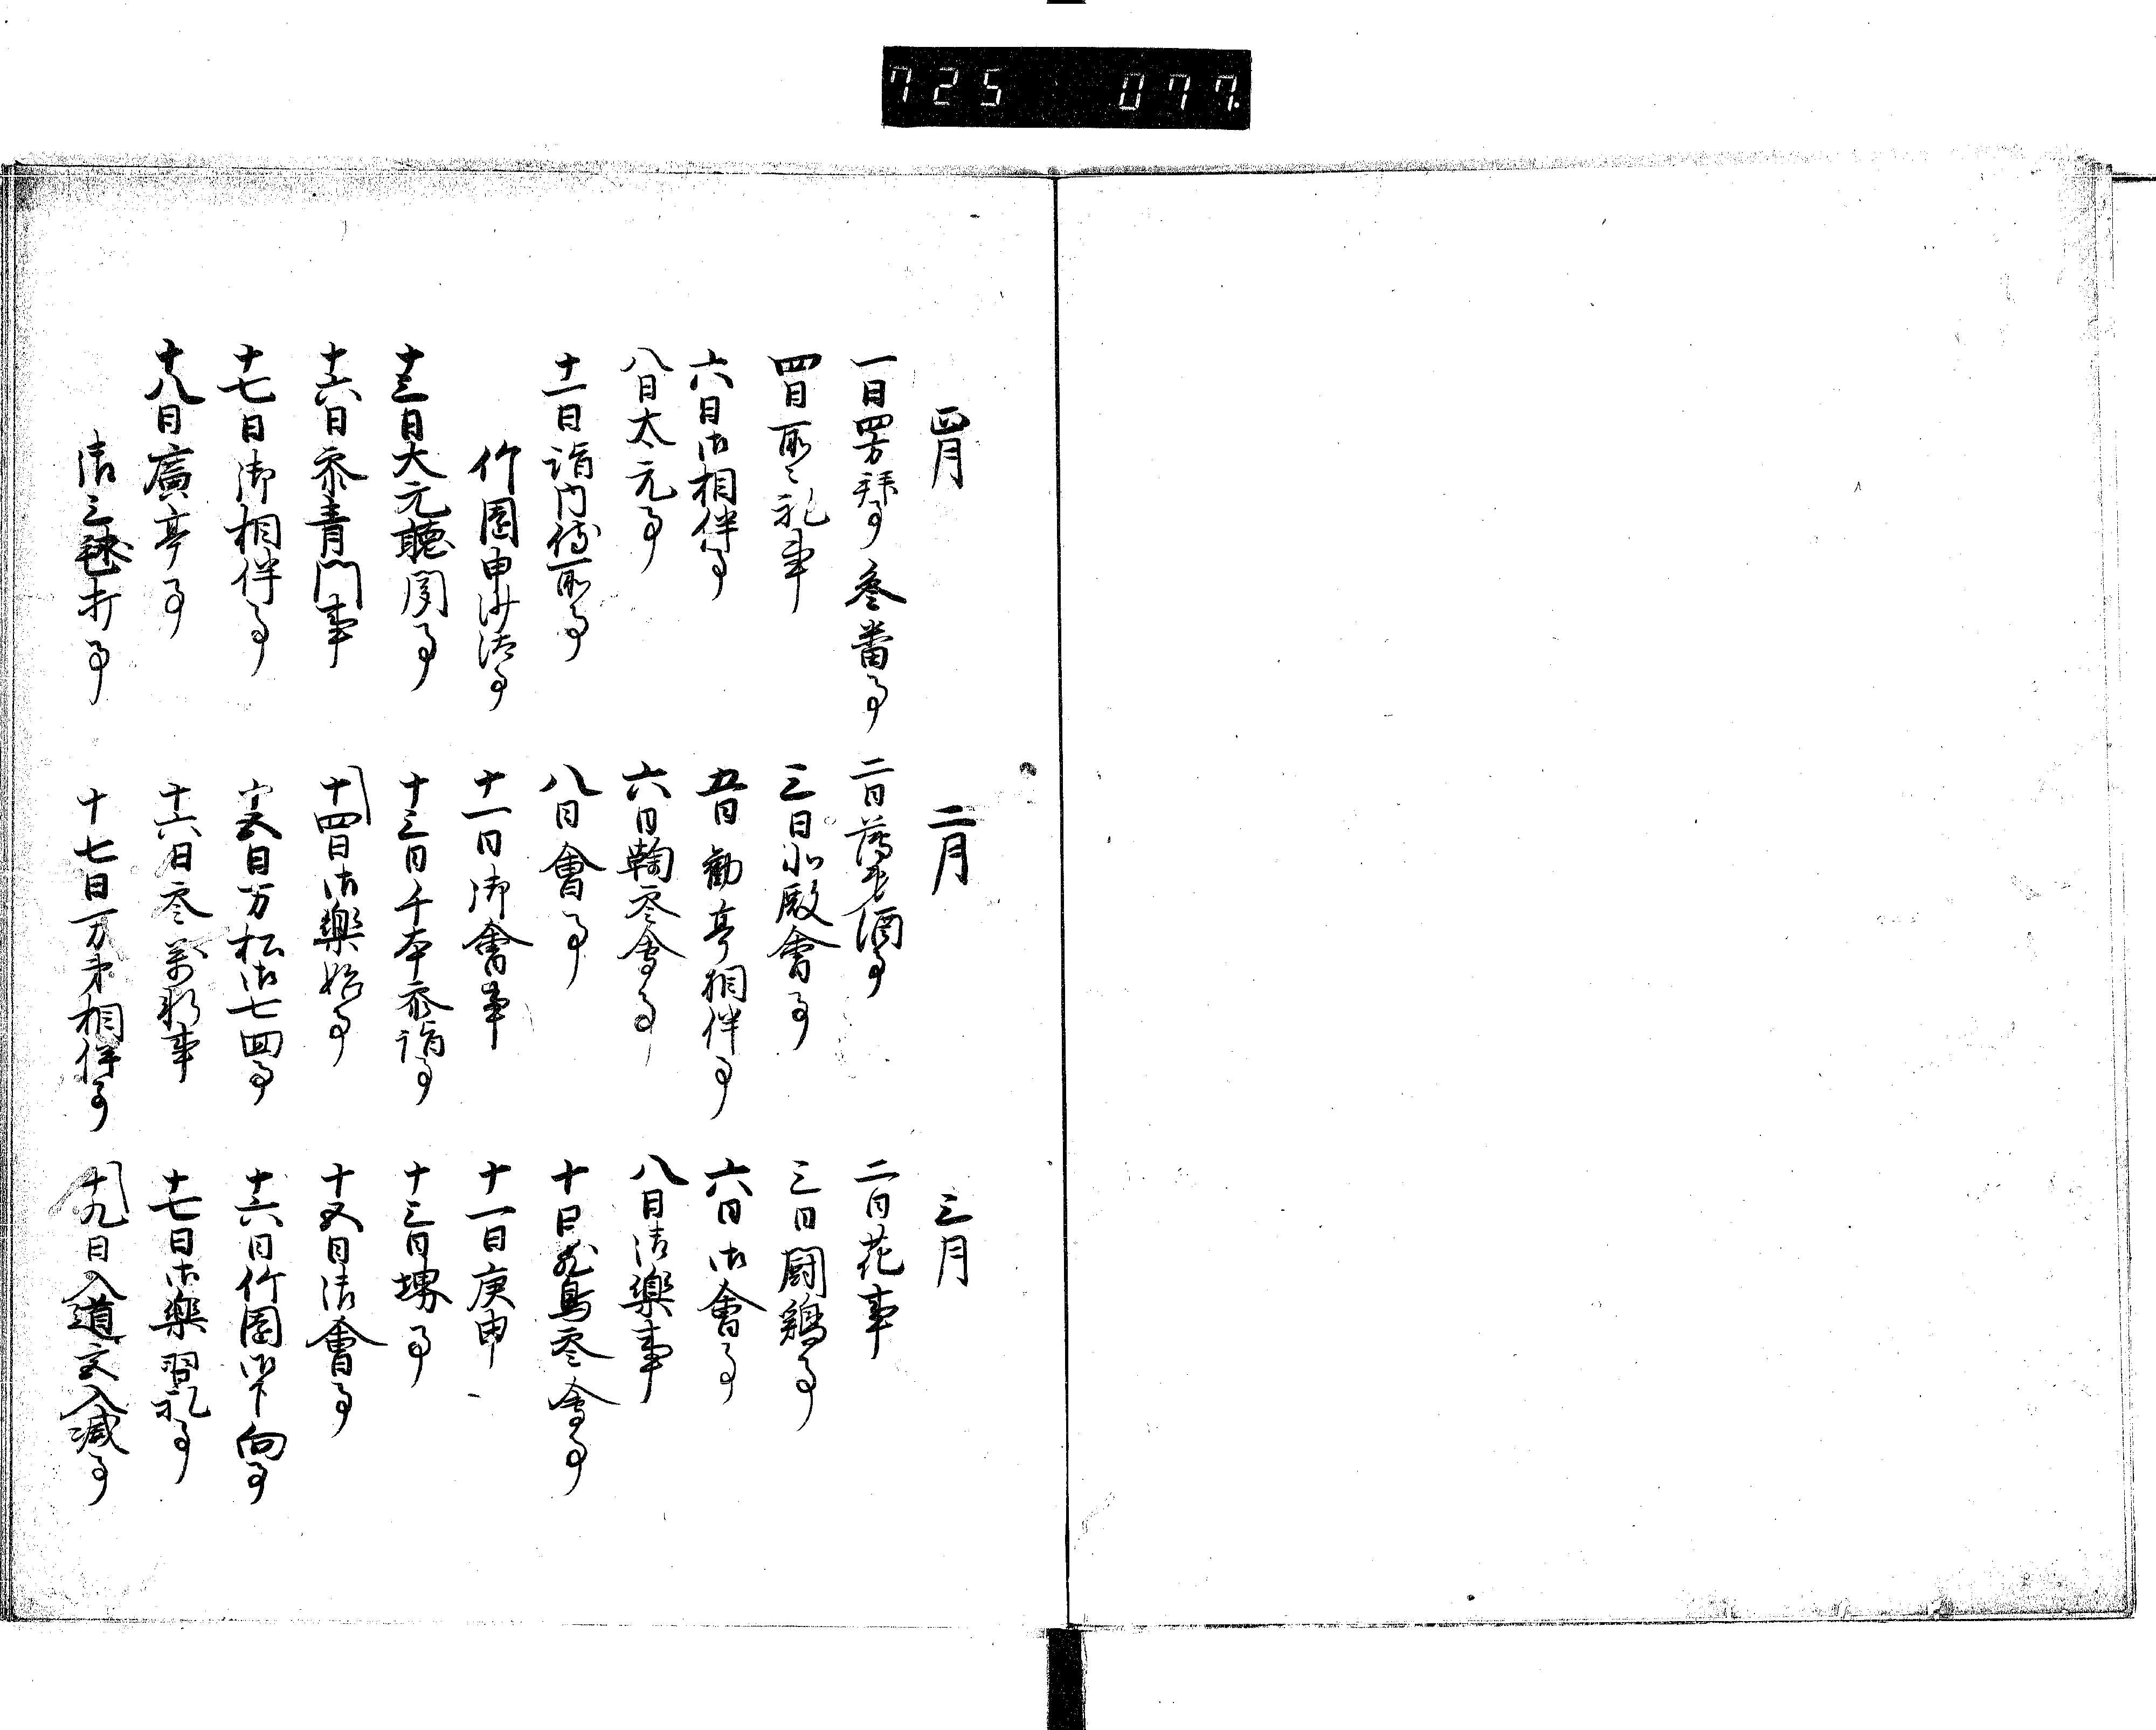 725 077
正月
一日四方拝事 参番事
四日所々礼事
六日御相伴事
八日太元事
十一日詣内侍所事
竹園申沙汰事
十三日大元聴聞事
十六日参青門事
十七日御相伴事
十八日廣亭事
清三毬打事
二月
二日 酒事
三日 殿會事
五日勧亭相伴事
六日鞠参會事
八日會事
十一日御會事
十三日千本参詣事
十四日御樂始事
十五日 松御七回事
十六日参 事
十七日万 相伴事
三月
二日花事
三日闘鶏事
六日御會事
八日法樂事
十日 鳥参會事
十一日庚申
十三日堺事
十五日法會事
十六日竹園御下向事
十七日御樂習礼事
十九日入道 入滅事